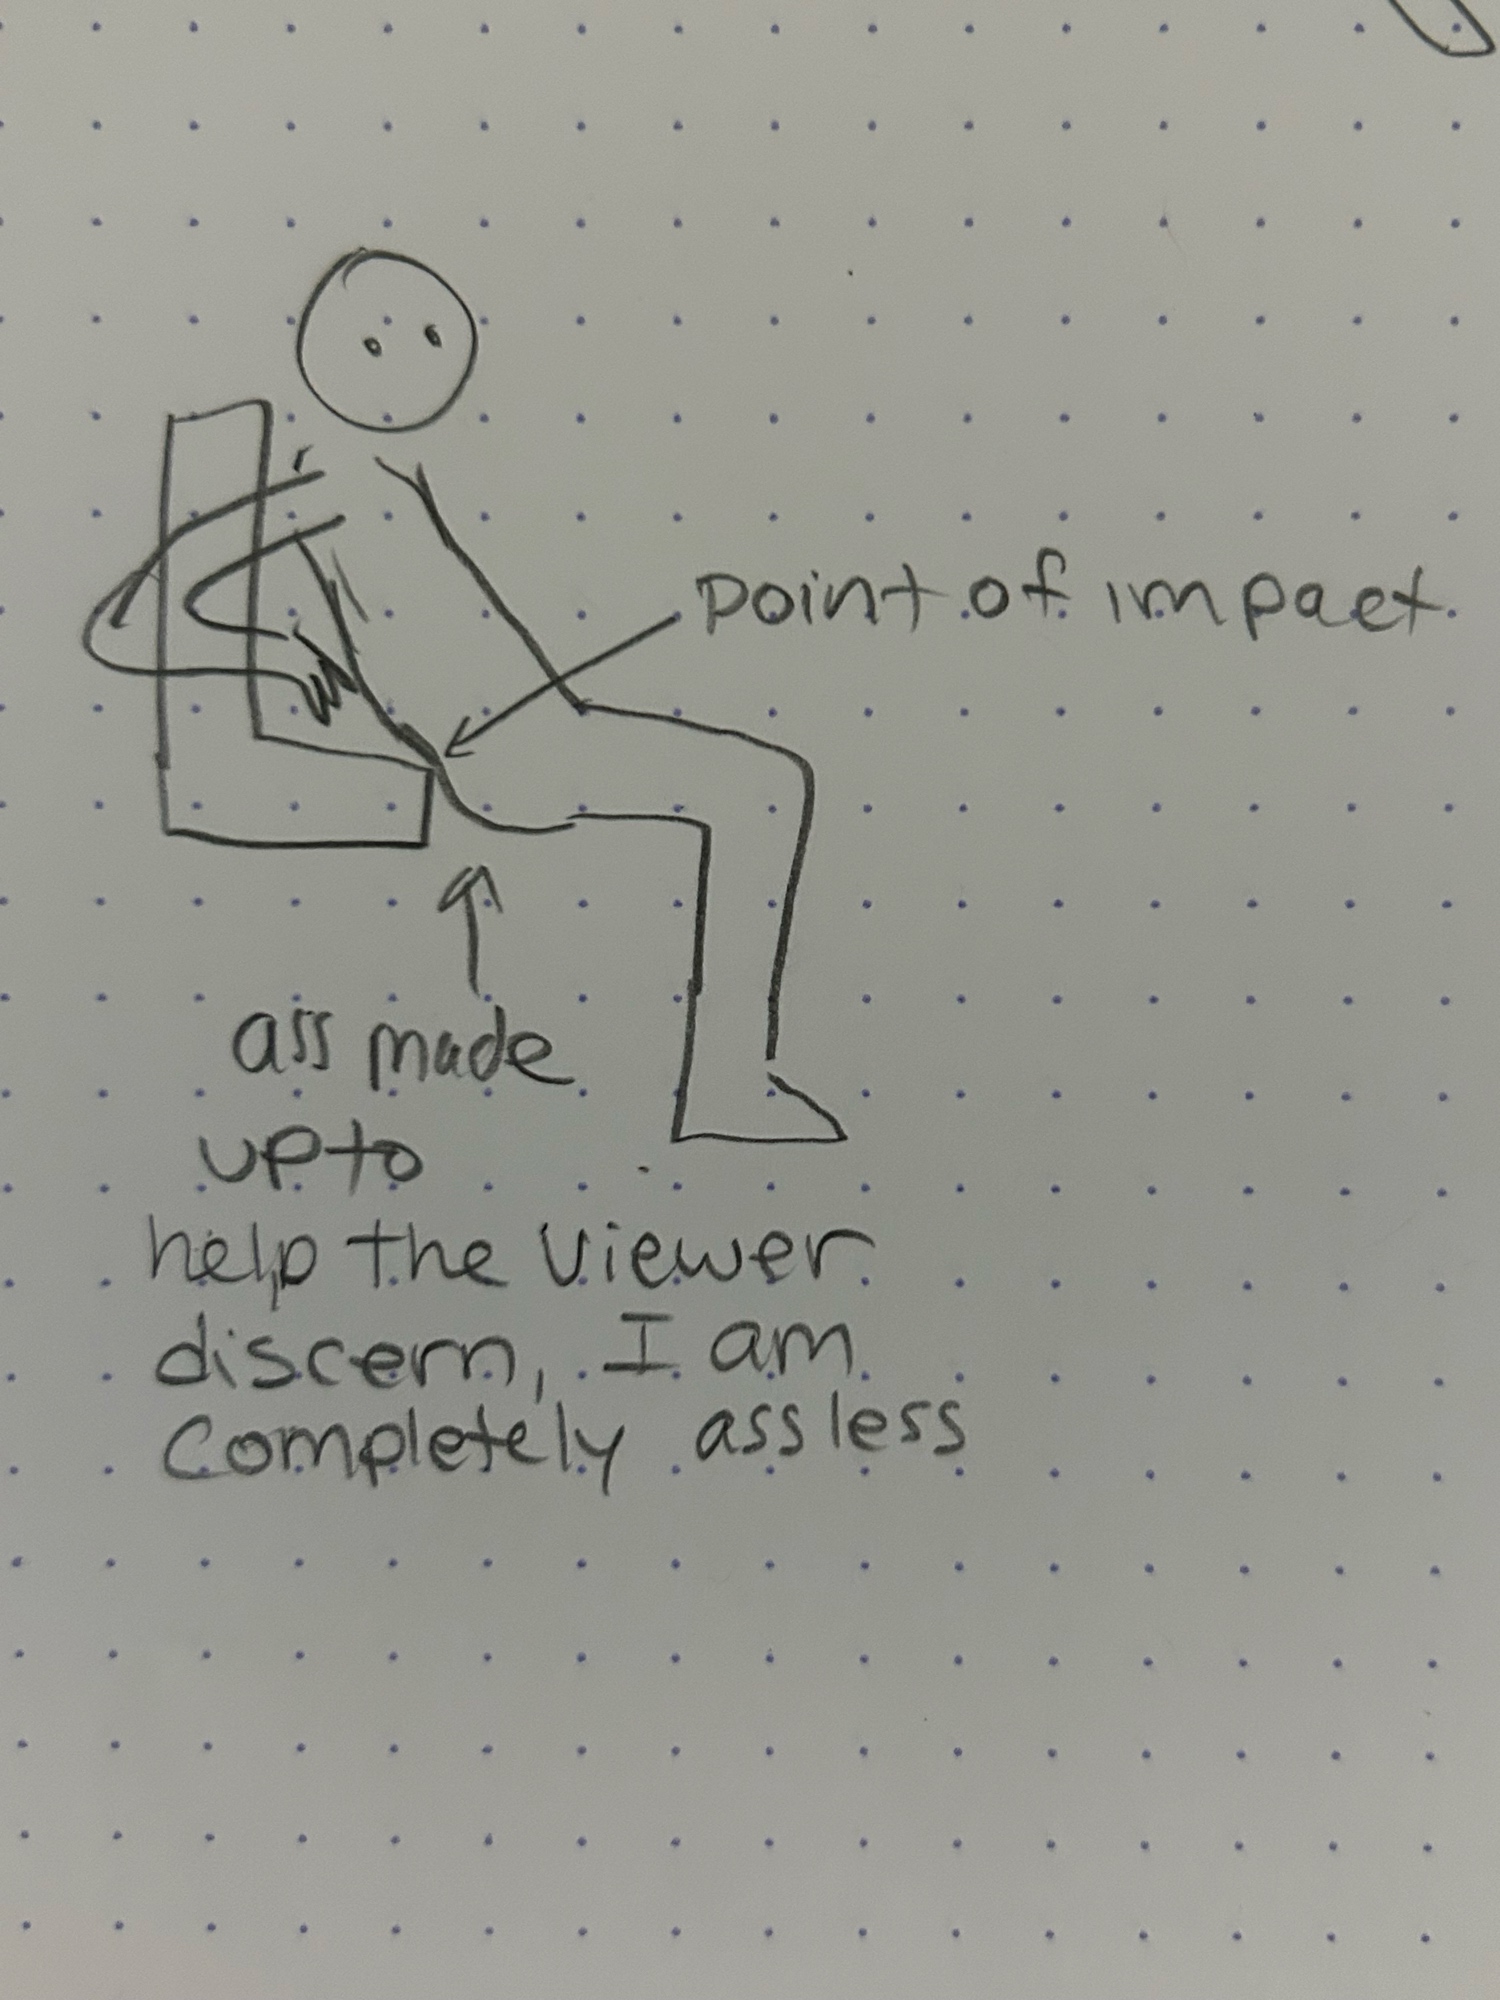 point of impact
ass made
up to
help the viewer
discern, I am
completely assless